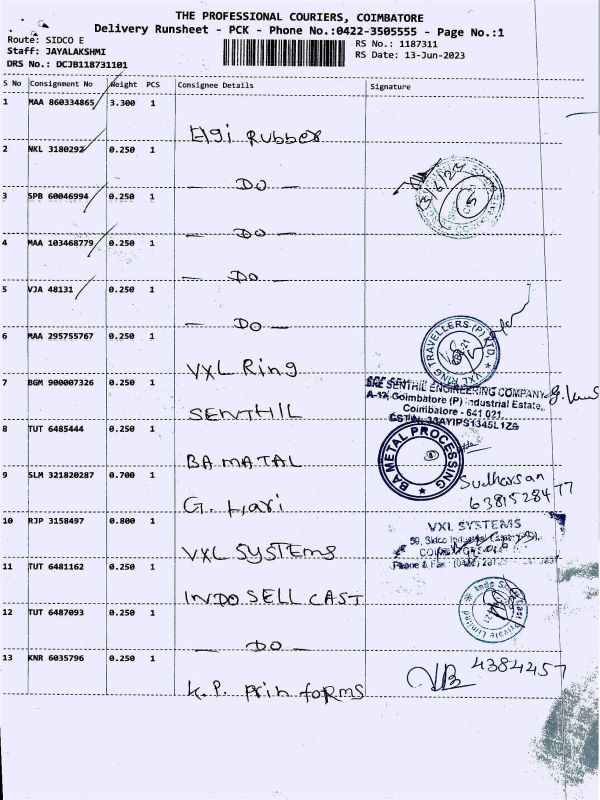 THE PROFESSIONAL COURIERS, COIMBATORE
Delivery Runsheet - PCK - Phone No.:0422-3505555 - Page No.:1
Route: SIDCO E
RS No.: 1187311
Staff: JAYALAKSHMI
RS Date: 13-Jun-2023
DRS No.: DCJB118731101
S No Consignment No Weight PCS Consignee Details Signature
1 MAA 860334865 3.300 1
Elgi Rubber
2 NKL 3180292 0.250 1
— DO —
13/6/23
3 SPB 60046994 0.250 1
— DO —
4 MAA 103468779 0.250 1
— DO —
5 VJA 48131 0.250 1
— DO —
VXL RING TRAVELLERS (P) LTD.
6 MAA 295755767 0.250 1
VXL Ring
7 BGM 900007326 0.250 1
SRE SENTHIL ENGINEERING COMPANY
A-12, Coimbatore (P) Industrial Estate,
Coimbatore - 641 021.
GSTIN: 33AYIPS1345L1Z6
SENTHIL
8 TUT 6485444 0.250 1
BA METAL PROCESSING
BA MATAL
9 SLM 321820287 0.700 1
Sudharsan
6381528477
G. Hari
10 RJP 3158497 0.800 1
VXL SYSTEMS
59, Sidco Industrial
Phone & Fax
VXL SYSTEMS
11 TUT 6481162 0.250 1
INDO SELL CAST
Indo Shell Cast Private Limited
12 TUT 6487093 0.250 1
— DO —
13 KNR 6035796 0.250 1
4384457
K.P. Prin forms